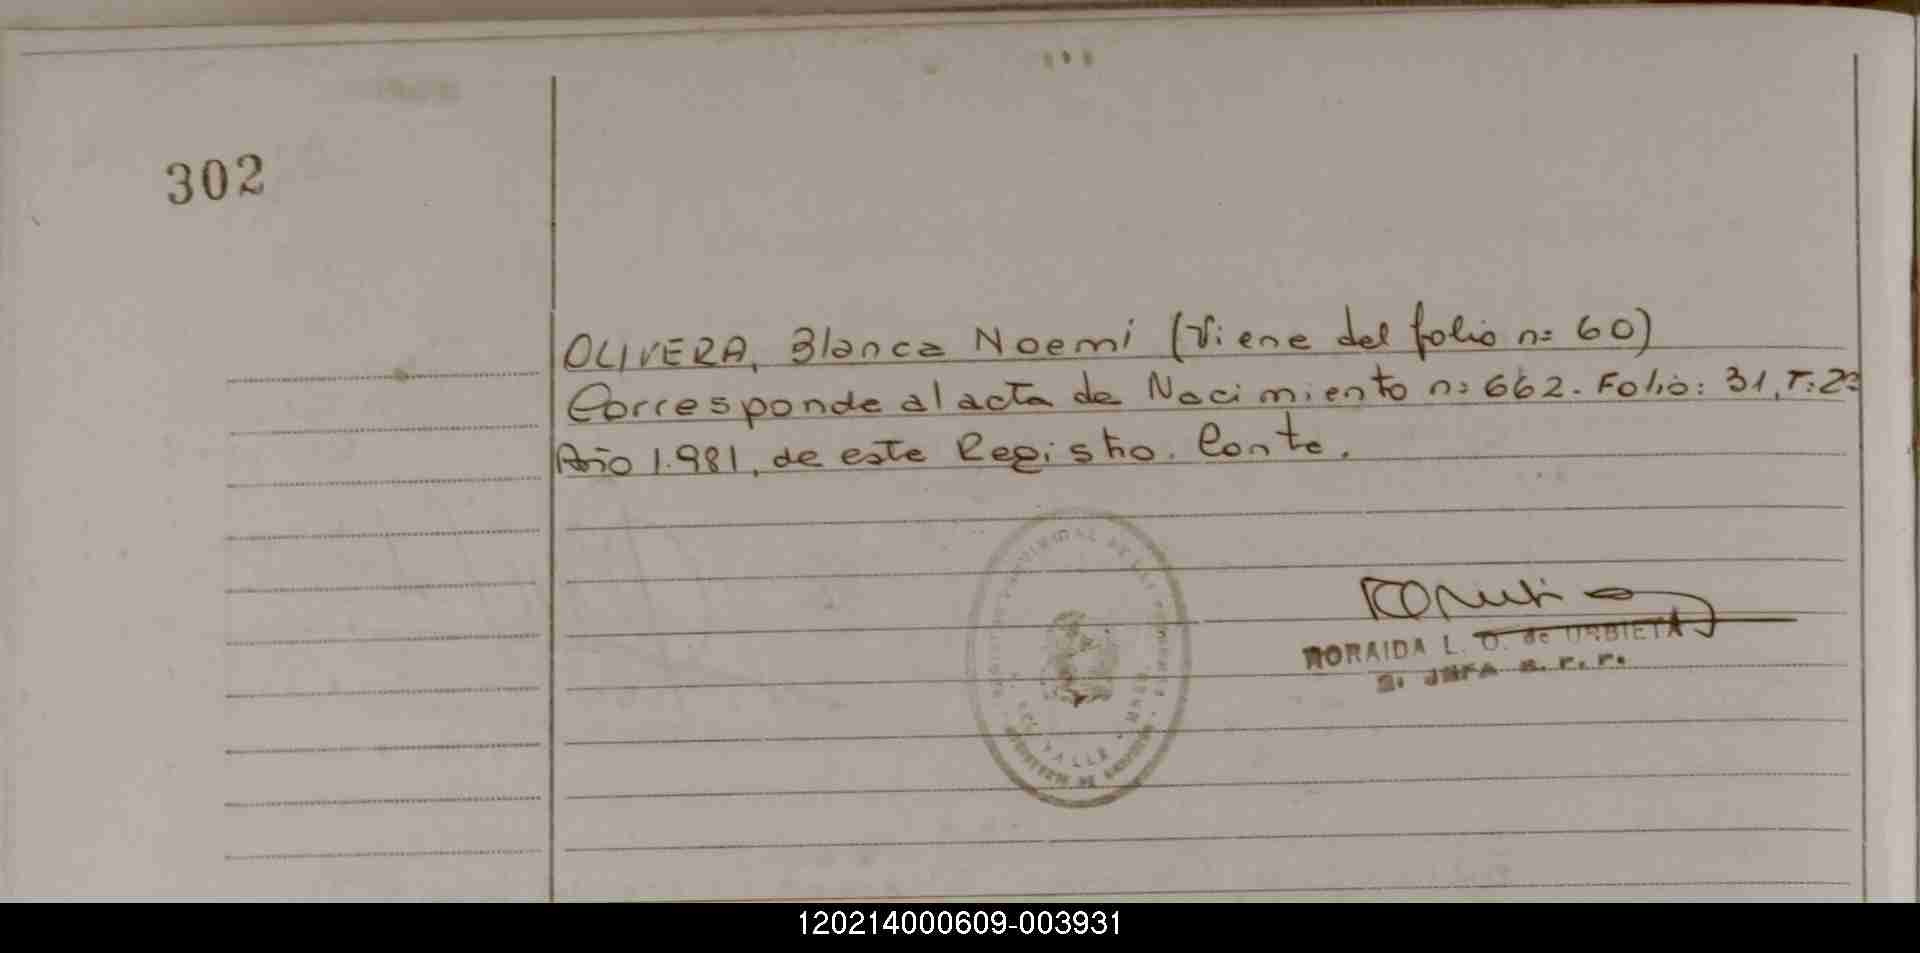 302
OLIVERA, Blanca Noemi (Viene del folio n= 60)
Corresponde al acta de Nacimiento n= 662. Folio: 31, T: 23
Año 1.981, de este Registro. Conte.
L. O. de URBIETA
120214000609-003931